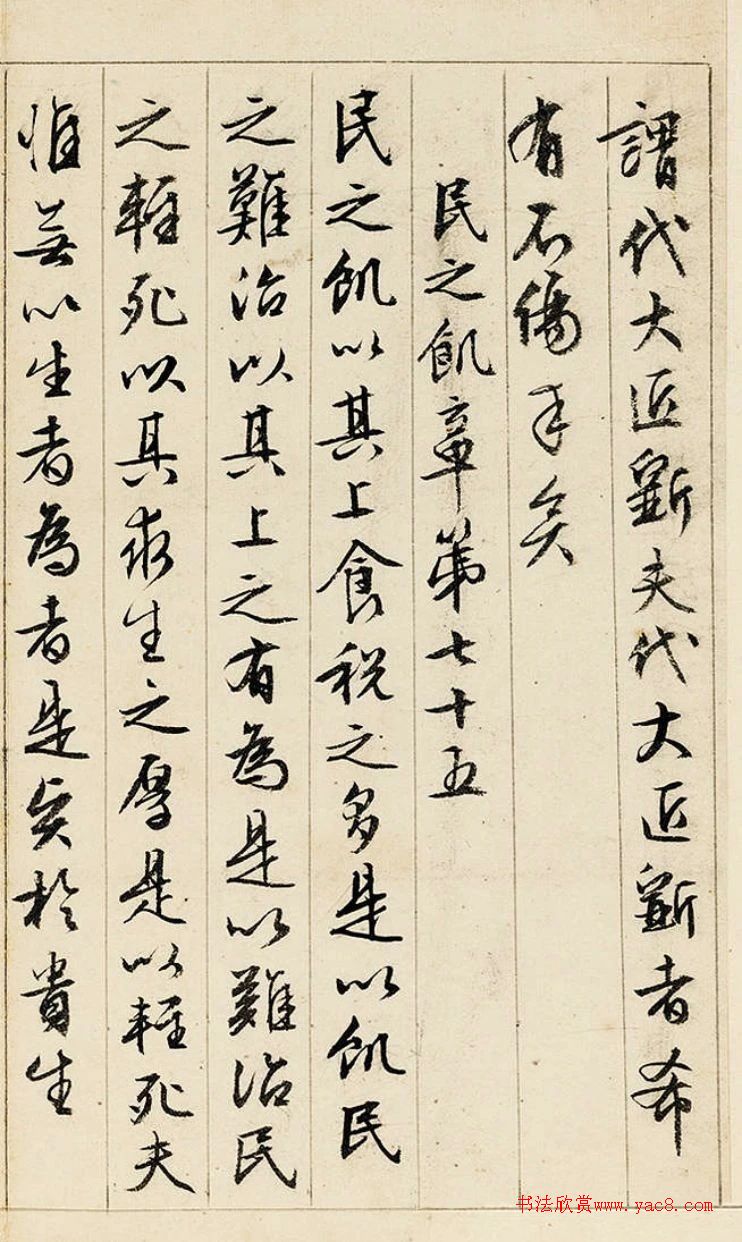 謂代大匠斲夫代大匠斲者希
有不傷手矣
民之飢章第七十五
民之飢以其上食税之多是以飢民
之難治以其上之有為是以難治民
之輕死以其求生之厚是以輕死夫
惟無以生者為者是賢於貴生
书法欣赏www.yac8.com